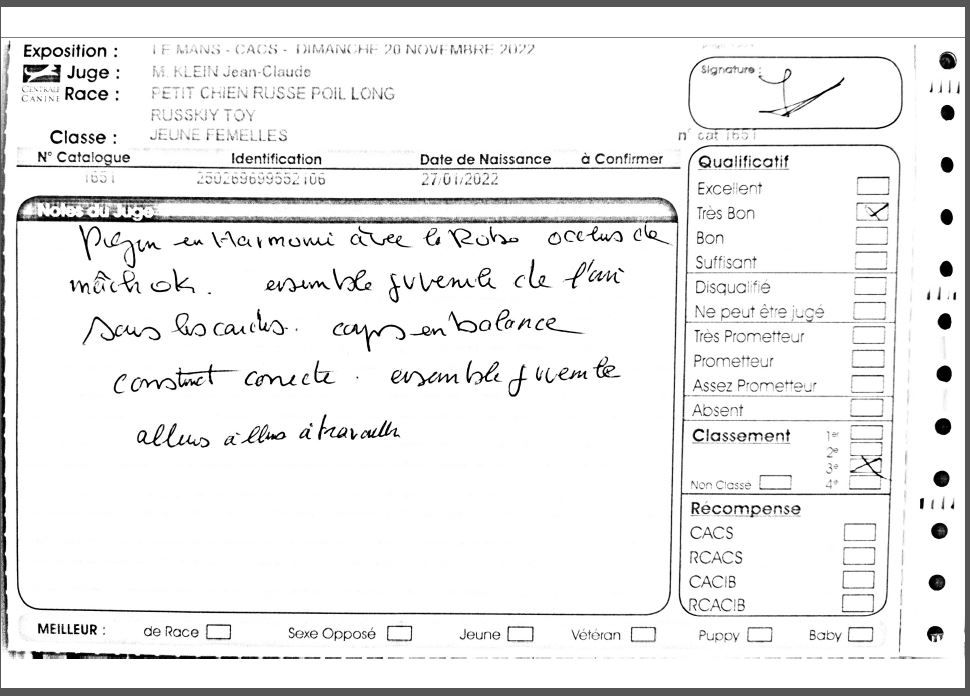 Exposition : LE MANS - CACS - DIMANCHE 20 NOVEMBRE 2022
Juge : M. KLEIN Jean-Claude
CENTRALE CANINE
Race : PETIT CHIEN RUSSE POIL LONG
RUSSKIY TOY
Classe : JEUNE FEMELLES
Signature :
n° cat 1651
N° Catalogue Identification Date de Naissance à Confirmer
1651 250269699552106 27/01/2022
Notes du Juge
en Harmonie avec la Robe occlus de
mâch ok. ensemble juvenile de
sous les corps en balance
construct correcte . ensemble juvenile
allures à travailler
Qualificatif
Excellent
Très Bon
Bon
Suffisant
Disqualifié
Ne peut être jugé
Très Prometteur
Prometteur
Assez Prometteur
Absent
Classement 1er
2e
3e
Non Classé 4e
Récompense
CACS
RCACS
CACIB
RCACIB
MEILLEUR : de Race Sexe Opposé Jeune Vétéran Puppy Baby